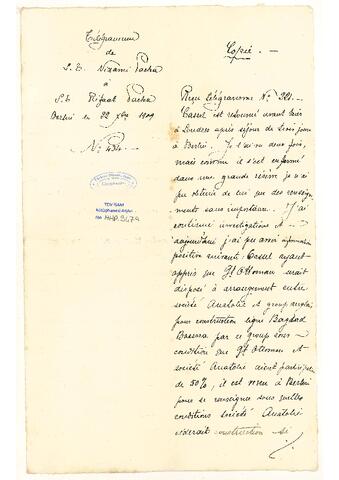 Télégramme
de
S. E. Nizami Pacha
à
S. E. Rifaat Pacha
Berlin le 22 Xbre 1909
No. 434
TDV İSAM
Kütüphanesi Arşivi
No HHP.3679
Copie. —
Reçu télégramme No. 321.
Cassel est retourné avant hier
à Londres après séjour de trois jours
à Berlin. Je l'ai vu deux fois,
mais comme il s'est enfermé
dans une grande réserve je n'ai
pu obtenir de lui que des renseigne-
ments sans importance. J'ai
continué investigations et
aujourd'hui j'ai pu avoir information
positive suivante: Cassel ayant
appris que Gt Ottoman serait
disposé à arrangement entre
société Anatolie et group anglais
pour construction ligne Bagdad
Bassora par ce group sous
condition que Gt Ottoman et
société Anatolie aient participation
de 50%, il est venu à Berlin
pour se renseigner sous quelles
conditions société Anatolie
céderait construction si